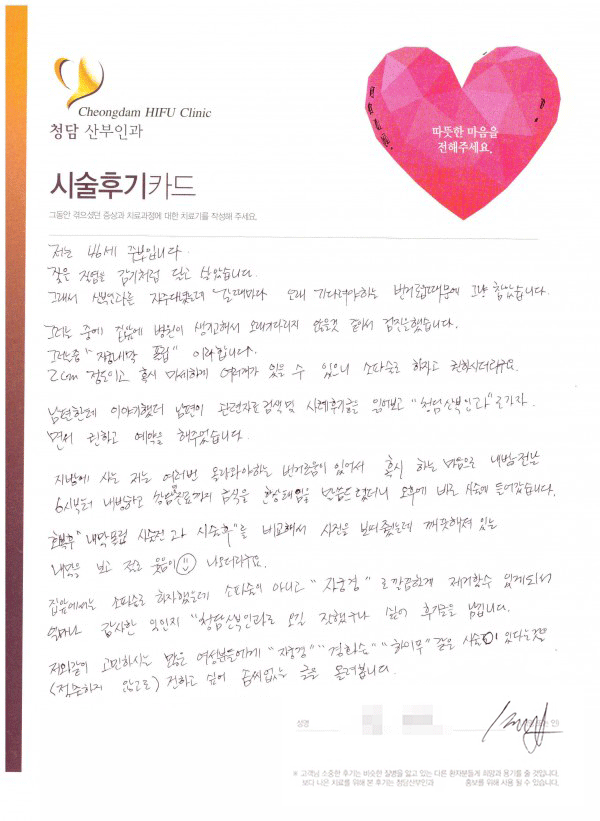 Cheongdam HIFU Clinic
청담 산부인과
따뜻한 마음을
전해주세요.
시술후기카드
그동안 겪으셨던 증상과 치료과정에 대한 치료기를 작성해 주세요.
저는 46세 주부입니다.
잦은 질염을 감기처럼 달고 살았습니다.
그래서 산부인과를 자주다녔는데 갈때마다 오래 기다려야하는 번거럽때문에 그냥 참았습니다.
그러는 중에 집앞에 병원이 생긴해서 오래기다리지 않을것 같아서 검진을했습니다.
그러는중 "자궁내막 폴립" 이라합니다.
2cm 정도이고 혹시 미세하게 여러개가 있을 수 있으니 소파술로 하자고 권하시더라구요.
남편한테 이야기했더니 남편이 관련자료검색및 사례후기글을 읽어보고 "청담산부인과"로가자.
면서 권하고 예약을 해주었습니다.
지방에 사는 저는 여러번 왔다갔다하는 번거로움이 있어서 혹시 하는 마음으로 내방전날
6시부터 내방하고 상담진료까지 금식을 한상태임을 말씀드렸더니 오후에 바로 시술에 들어갔습니다.
회복후 "내막폴립 시술전과 시술후"를 비교해서 사진을 보여줬는데 깨끗해져 있는
내막을 보고 절로 웃음이 나오더라구요.
집앞에서는 소파술로 하자했는데 소파술이 아니고 "자궁경"로 깔끔하게 제거할수 있게되서
얼마나 감사한 일인지 "청담산부인과로 오길 잘했구나 싶어 후기글을 남깁니다.
저와같이 고민하시는 많은 여성분들에게 "자궁경" "경화술" "하이푸" 같은 시술이 있다는것을
(적출하지 않고로) 전하고 싶어 솜씨없는 글을 올려봅니다.
성명
인)
※ 고객님 소중한 후기는 비슷한 질병을 앓고 있는 다른 환자분들께 희망과 용기를 줄 것입니다.
보다 나은 치료를 위해 본 후기는 청담산부인과 홍보를 위해 사용 될 수 있습니다.